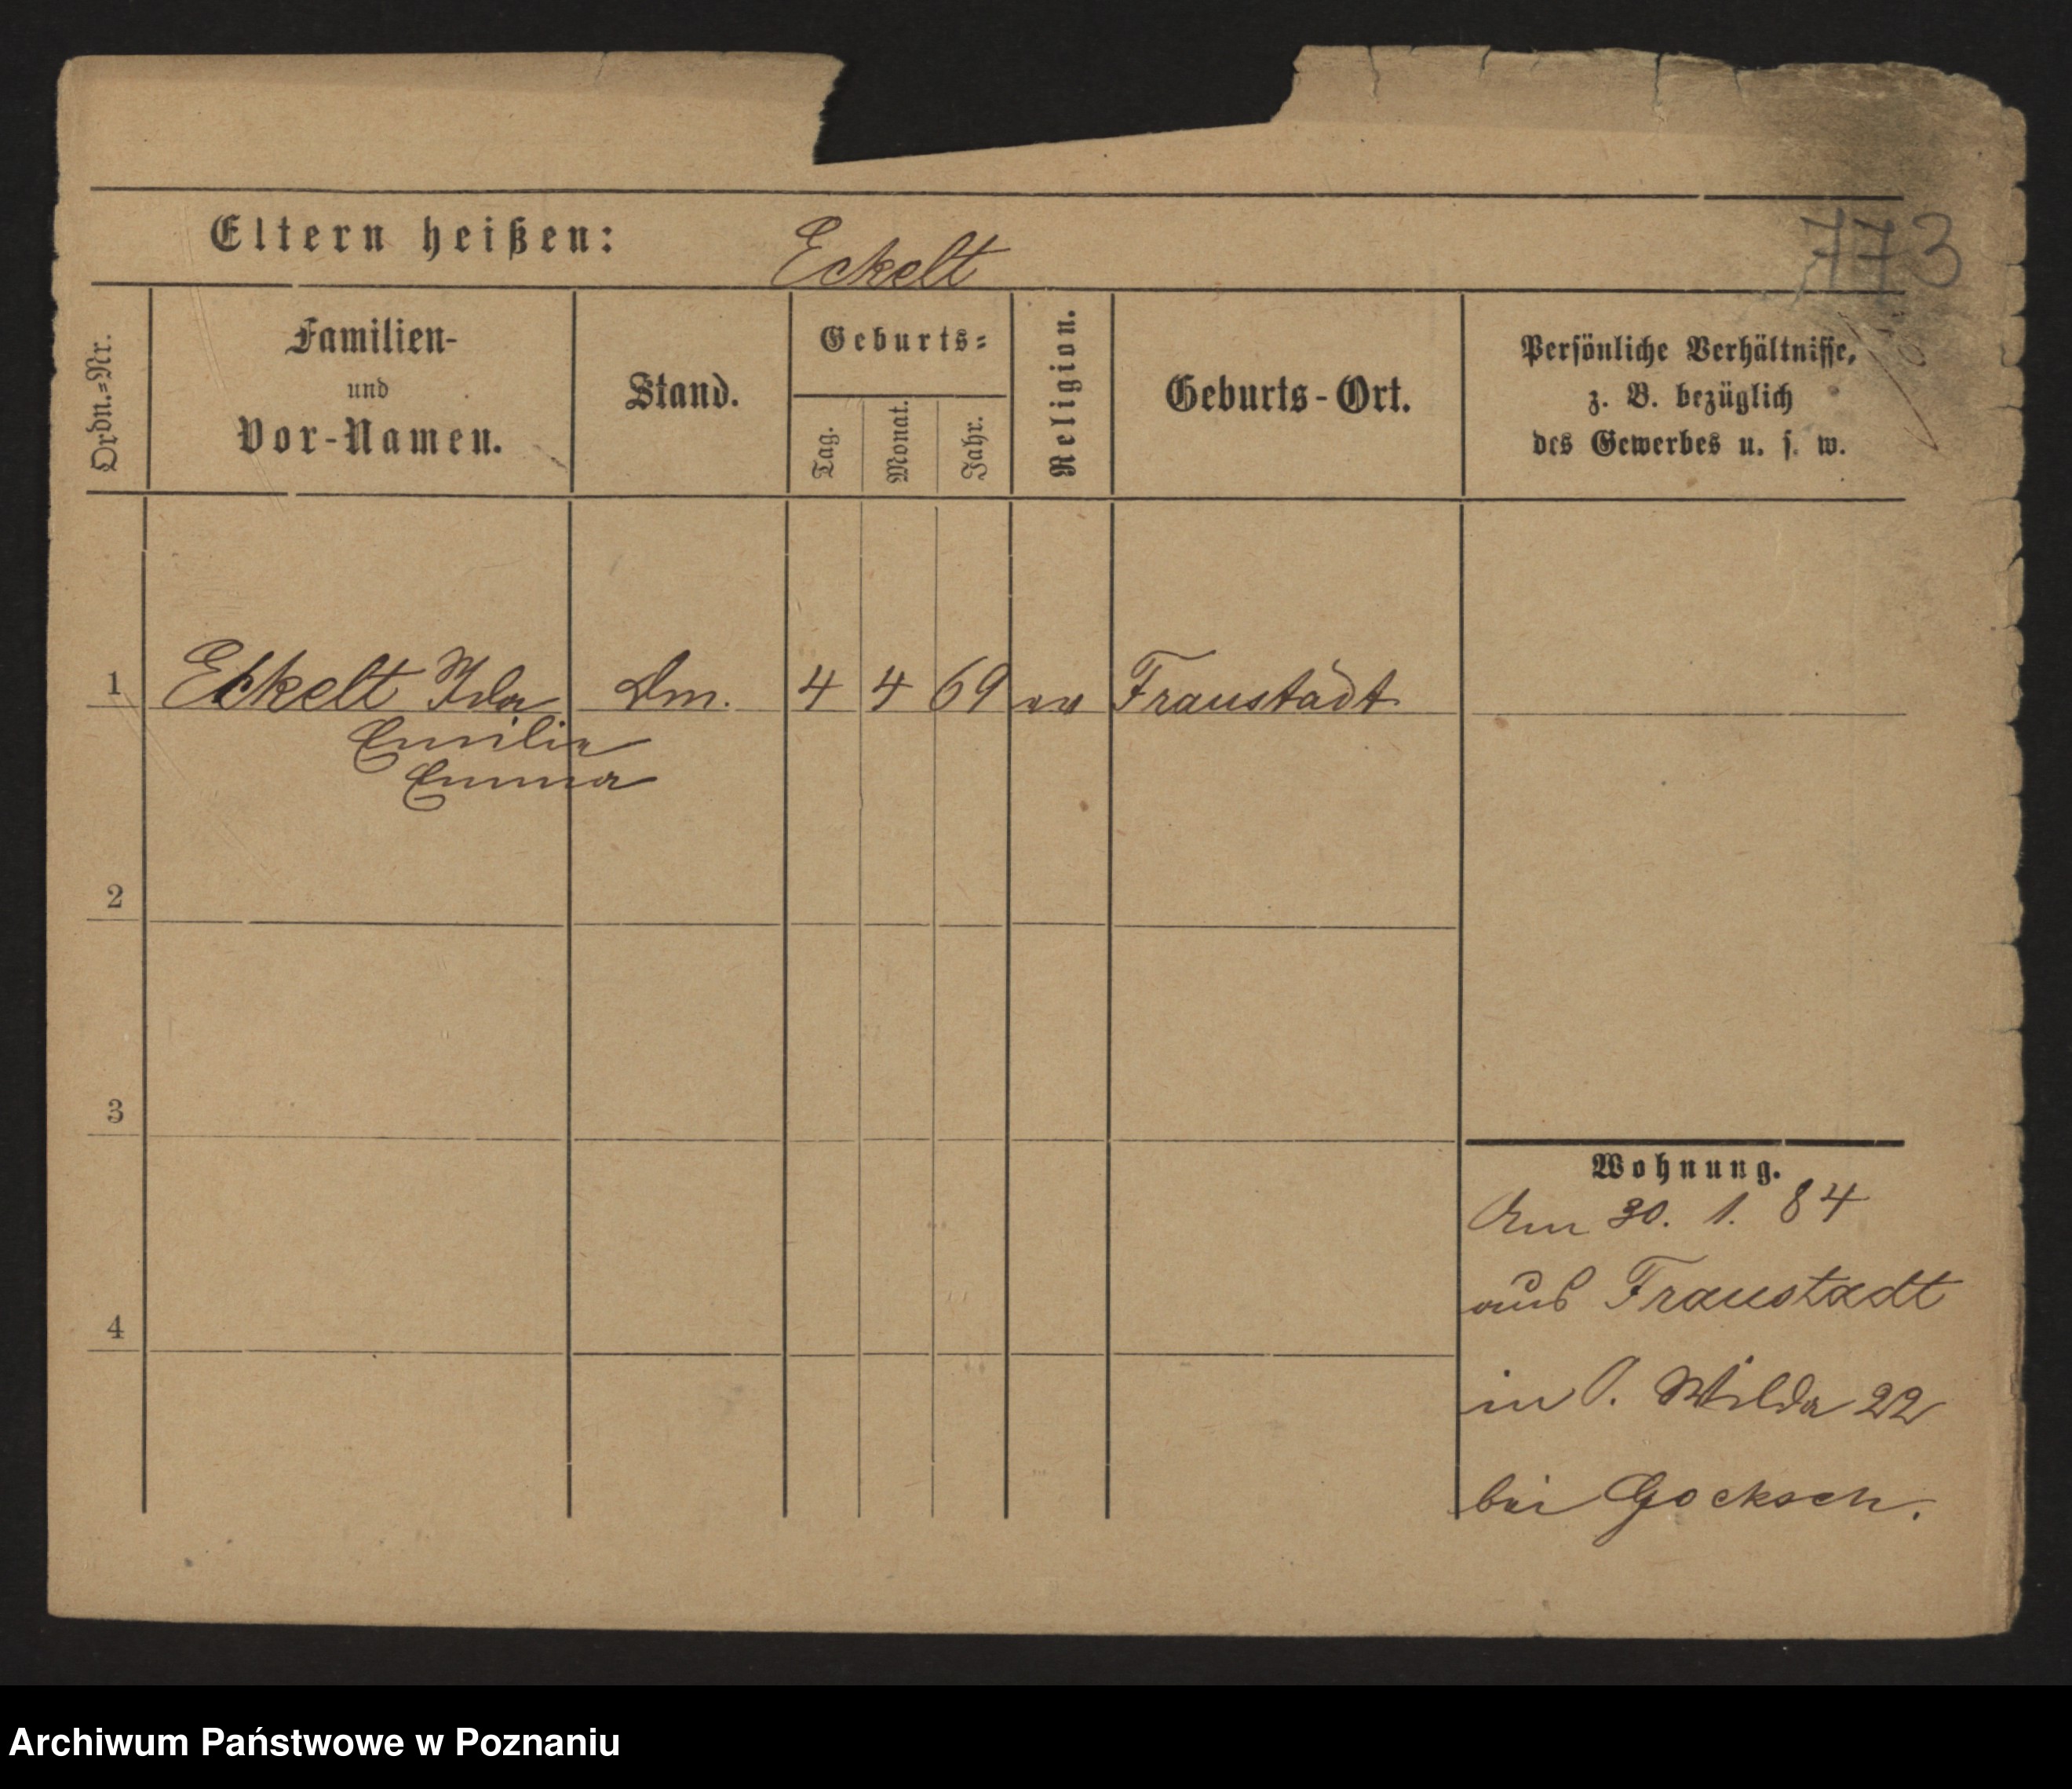 Eltern heißen: Eckelt
773
Ordn.=Nr.
Familien-
und
Vor-Namen.
Stand.
Geburts=
Tag.
Monat.
Jahr.
Religion.
Geburts-Ort.
Persönliche Verhältnisse,
z. B. bezüglich
des Gewerbes u. s. w.
1 Eckelt Ida Dm. 4 4 69 ev Fraustadt
Emilie
Emma
2
3
4
Wohnung.
Am 30. 1. 84
aus Fraustadt
in O. Wilda 22
bei Gocksch.
Archiwum Państwowe w Poznaniu